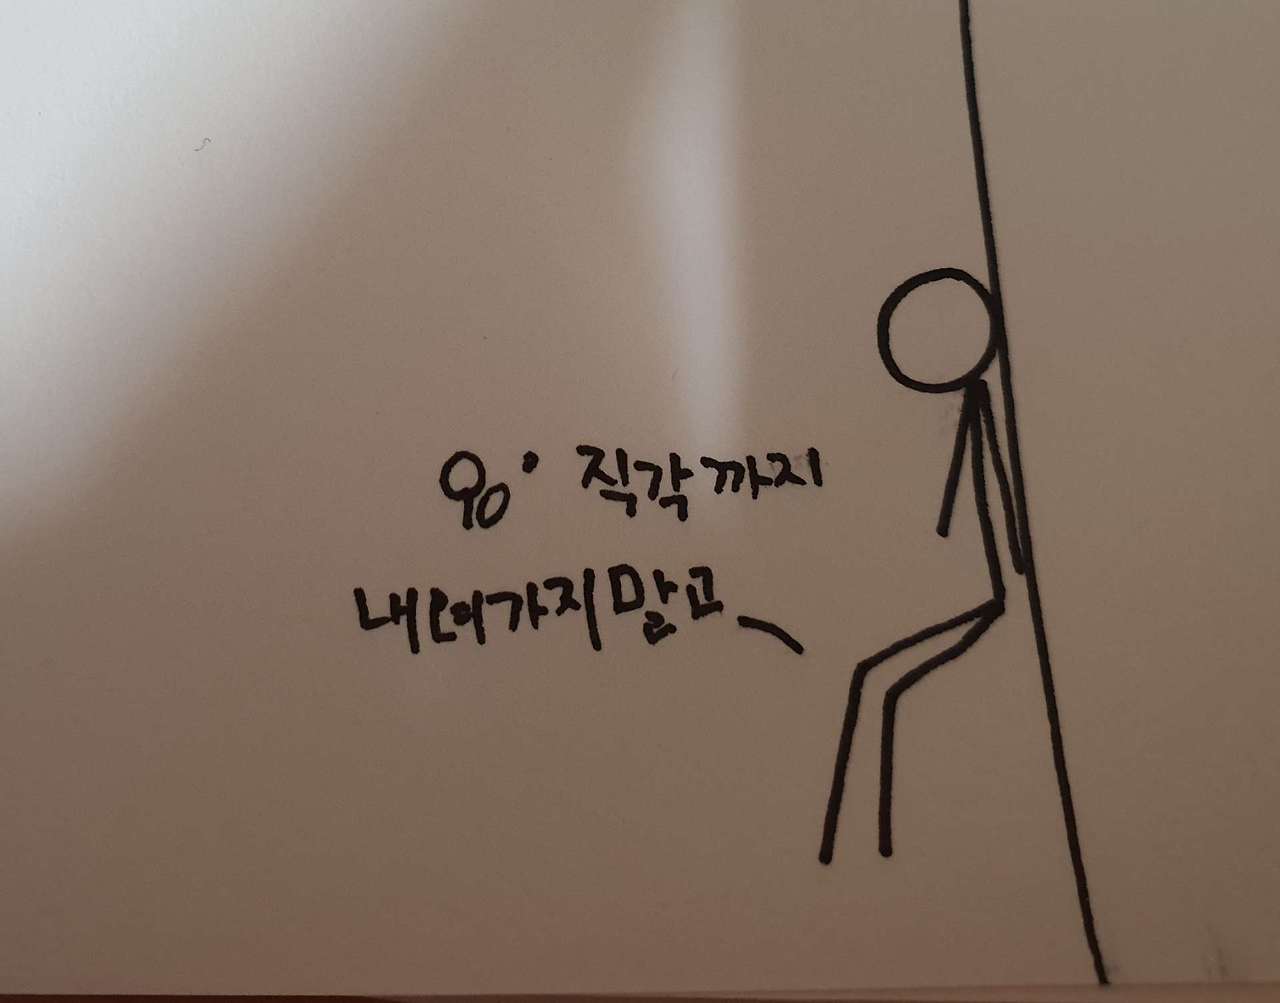 90° 직각까지
내려가지말고